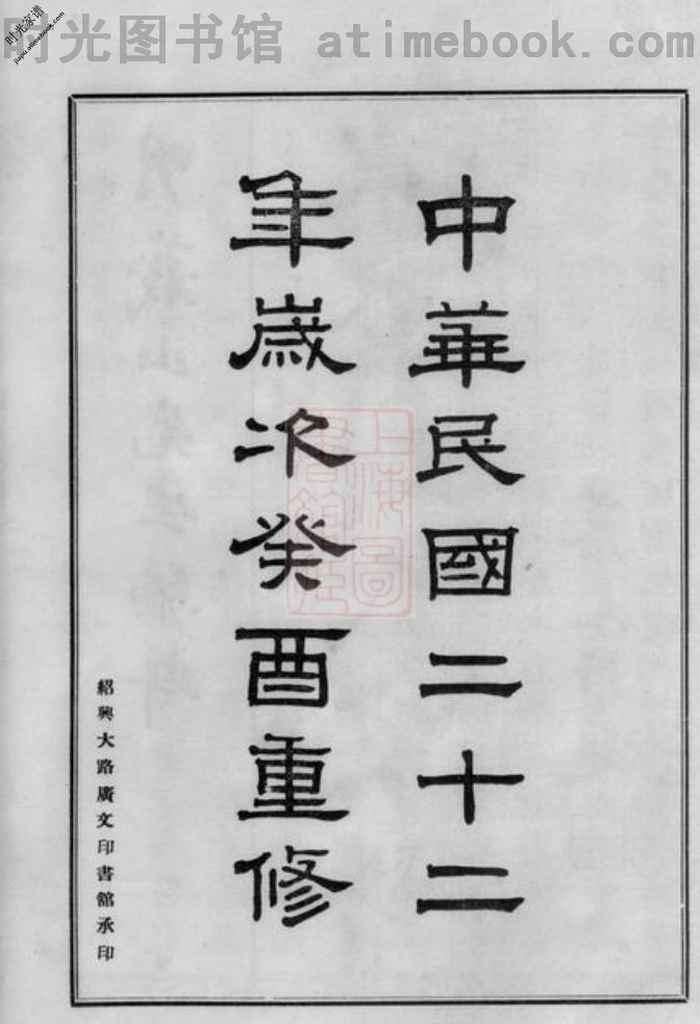 时光图书馆 atimebook.com
时光家谱
jiapu.atimebook.com
中華民國二十二
年歲次癸酉重修
紹興大路廣文印書館承印